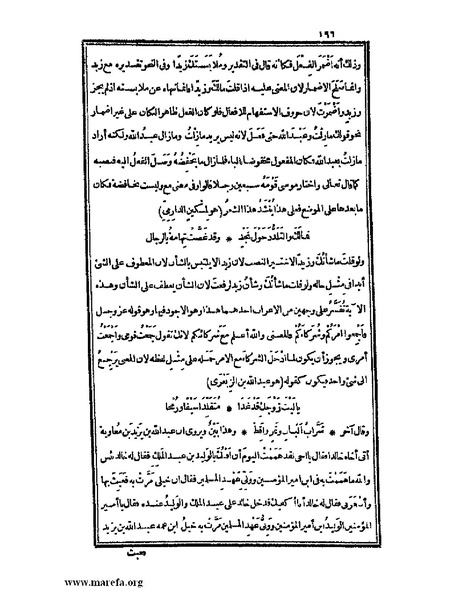 ١٩٦
وذلك أنه أضمر الفعل فكأنه قال في التقدير وملابستك زيدا وفي النحو تقديره مع زيد
وانما صلح الاضمار لان المعنى عليه اذا قلت مالك وزيدا فانما تنهاه عن ملابسته اذ لم يجز
وزيد وأضمرت لان حروف الاستفهام للافعال فلو كان الفعل ظاهرا لكان على غير اضمار
نحو قولك مازلت وعبد الله حتى فعل لانه ليس يريد مازلت ومازال عبد الله ولكنه أراد
مازلت بعبد الله فكان المفعول مخفوضا بالباء فلما زال ما يخفضه وصل الفعل اليه فنصبه
كما قال تعالى واختار موسى قومه سبعين رجلا فالواو في معنى مع وليست بخافضة فكان
ما بعدها على الموضع فعلى هذا ينشد هذا الشعر (هو لمسكين الدارمي)
فمالك والتلدد حول نجد * وقد غصت تهامة بالرجال
ولو قلت ما شأنك وزيدا لاختير النصب لان زيدا لا يلتبس بالشأن لان المعطوف على الشئ
أبدا في مثل حاله ولو قلت ما شأنك وشأن زيد لرفعت لان الشأن يعطف على الشأن وهذه
الآية تفسر على وجهين من الاعراب احدهما هذا وهو الاجود فيها وهو قوله عز وجل
فأجمعوا أمركم وشركاءكم فالمعنى والله أعلم مع شركائكم لانك تقول جمعت قومي وأجمعت
أمري ويجوز أن يكون لما أدخل الشركاء مع الامر حمله على مثل لفظه لان المعنى يرجع
الى شئ واحد فيكون كقوله (هو عبد الله بن الزبعرى)
ياليت زوجك قد غدا * متقلدا سيفا ورمحا
وقال آخر * شراب ألبان وتمر وأقط * وهذا بين ويروى ان عبد الله بن يزيد بن معاوية
أتى أخاه خالدا فقال يا أخى لقد هممت اليوم أن أفتك بالوليد بن عبد الملك فقال له خالد بئس
والله ما هممت به في ابن أمير المؤمنين وولي عهد المسلمين فقال ان خيلى مرت به فعبث بها
وأصغرنى فقال له خالد أنا أكفيك فدخل خالد على عبد الملك والوليد عنده فقال يا أمير
المؤمنين الوليد ابن أمير المؤمنين وولى عهد المسلمين مرت به خيل ابن عمه عبد الله بن يزيد
فعبث
www.marefa.org